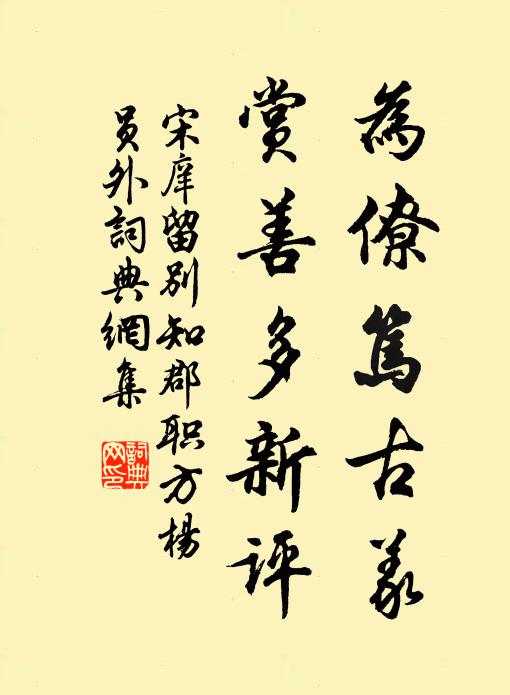 為僚篤古義
賞善多新評
宋庠留别知郡职方楊
员外詞典網集
詞典
网印